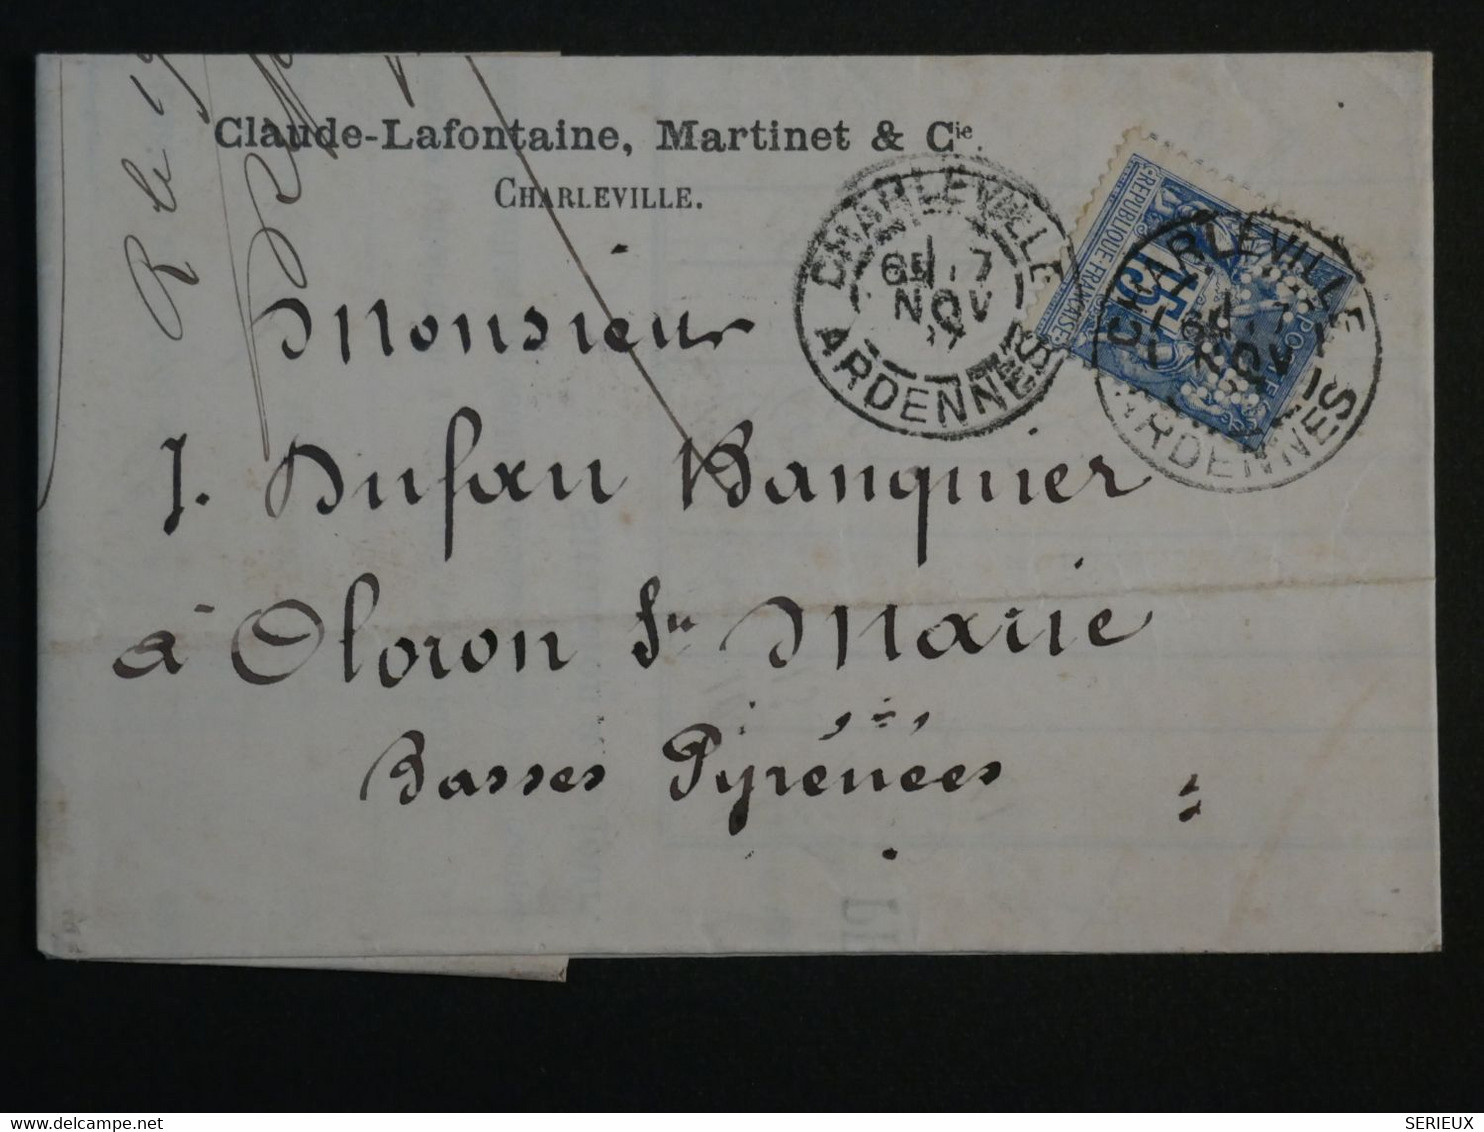 R le 19
Claude-Lafontaine, Martinet & Cie.
CHARLEVILLE.
CHARLEVILLE
7
NOV
ARDENNES
REPUBLIQUE FRANÇAISE
15
POSTES
CHARLEVILLE
7
NOV
ARDENNES
Monsieur
J. Dufau Banquier
à Oloron Ste Marie
Basses Pyrénées
SERIEUX